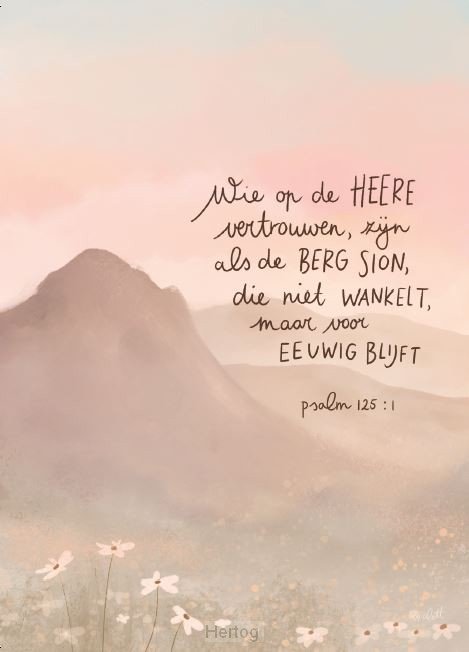 Wie op de HEERE
vertrouwen, zijn
als de BERG SION,
die niet WANKELT,
maar voor
EEUWIG BLIJFT
psalm 125 : 1
Hertog